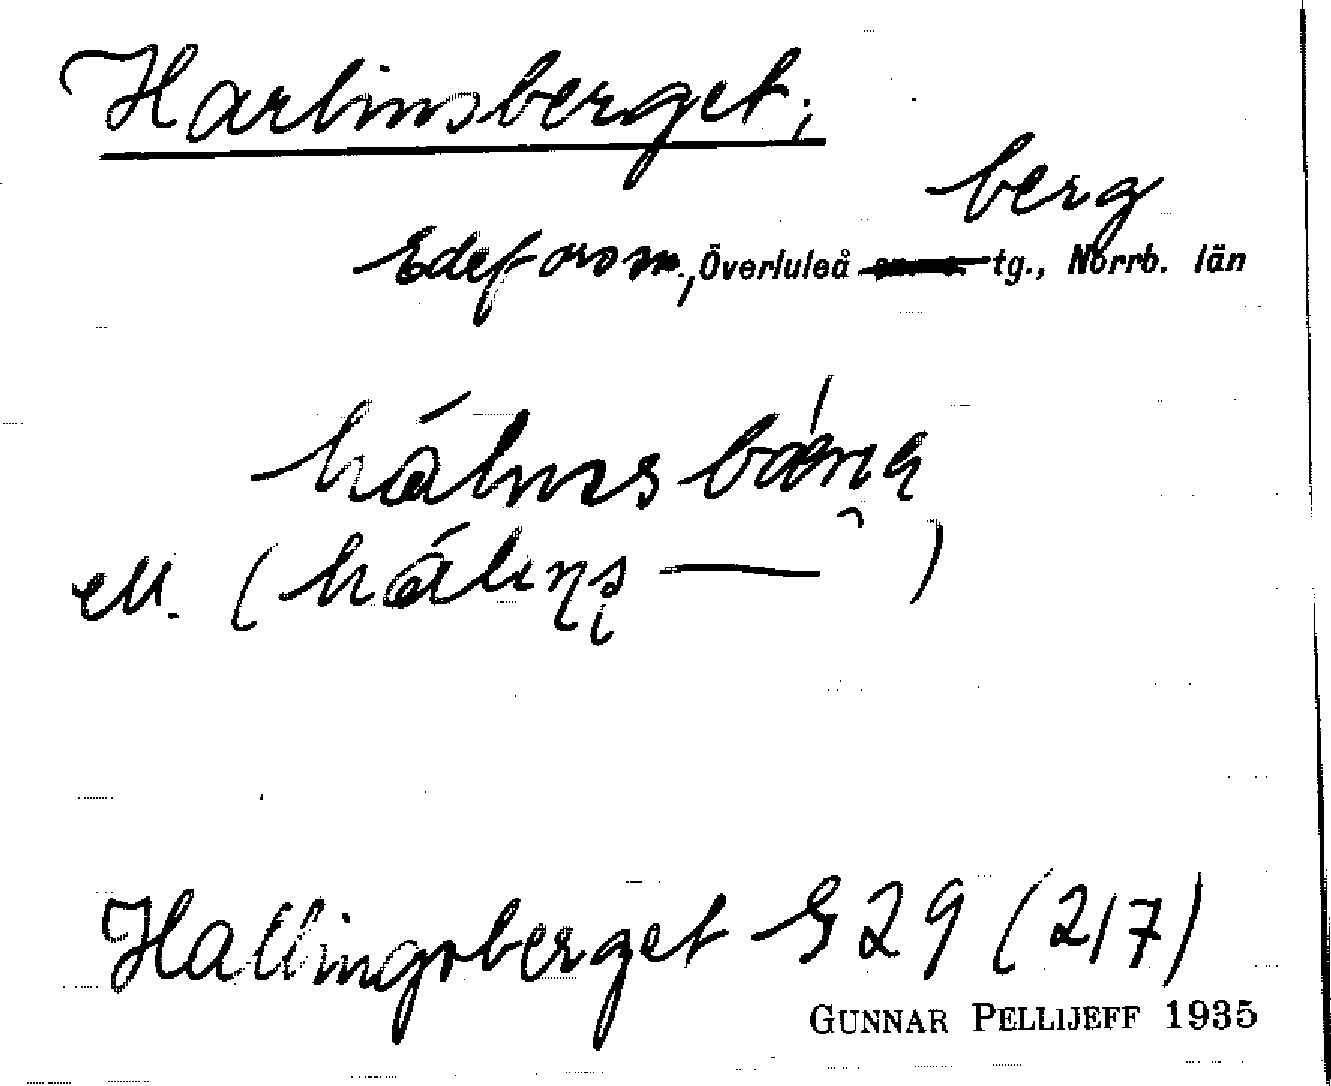 Harlinsberget;
berg
Edefors sn., Överluleå tg., Norrb. län
ell. (
— )
Hallingsberget G 29 (217)
GUNNAR PELLIJEFF 1935